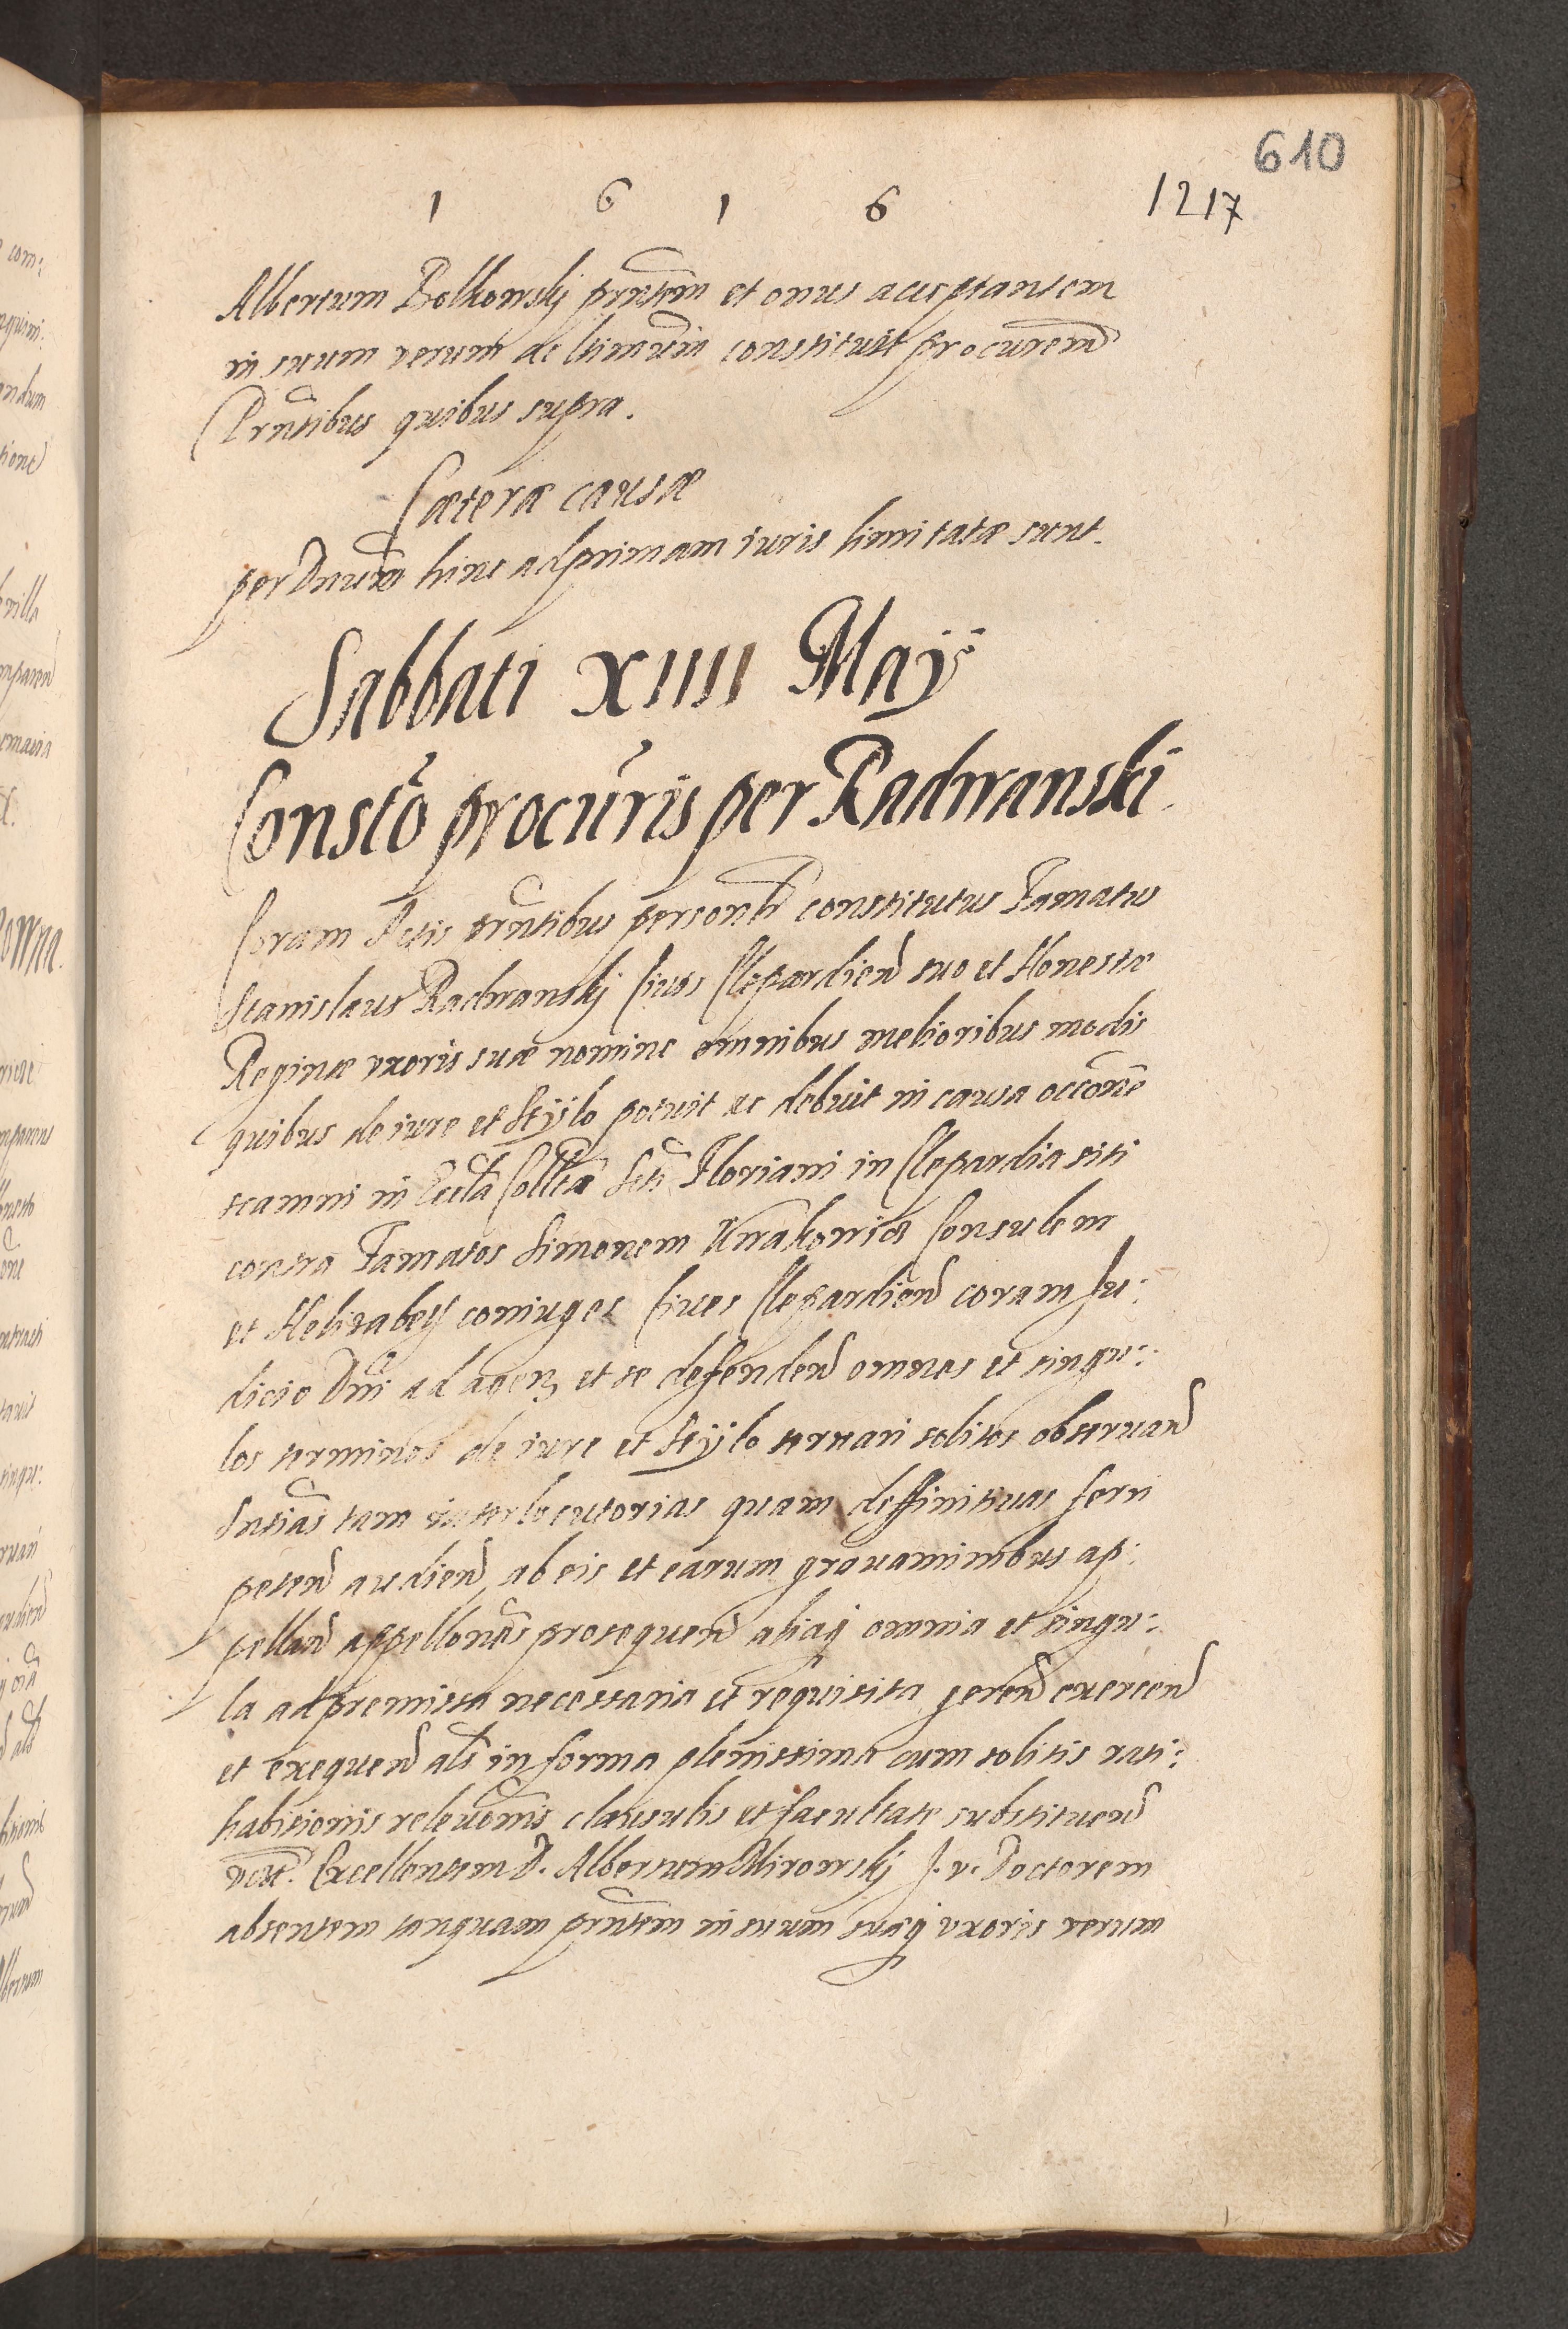 610
1 6 1 6 1217
Albertum Bolkowskj prñtem et onus acceptantem
in suum verum ac ltimum̃ constituit procurem̃
Prñtibus quibus supra.
Cæteræ causæ
per Dnum̃ hinc ad primam iuris limitatæ sunt.
Sabbati XIIII Maÿ
Constõ procuris̃ per Radwanski.
Coram Actis prñtibus personlr̃ constitutus Famatus
Stanislaus Radwanskj Ciuis Clepardien̄ suo et Honestæ
Reginæ vxoris suæ nomine omnibus melioribus modis
quibus de iure et Stÿlo potuit ac debuit in causa occōne
scamni in Eccla͂ Collta͂ Scti͂ Floriani in Clepardia siti
contra Famatos Simonem Knakowicz Consulem
et Helizabeth coniuges Ciues Clepardien̄ coram Ju:
dicio Dn̄i ad agen̄ et se defenden̄ omnes et singu:
los terminos de iure et Stÿlo seruari solitos obseruan̄
Sntias͂ tam interlocutorias quam deffinitiuas ferri
peten̄ audien̄ ab eis et earum grauaminibus ap:
pellan̄ appellones͂ prosequen̄ aliaq omnia et singu:
la ad premissa necessaria et requisita geren̄ exercen̄
et exequen̄ als͂ in forma plenissima cum solitis rati:
habitionis releuōnis clausulis et facultate substituen̄
vctt. Excellentem D. Albertum Mirowskj J. v. Doctorem
absentem tanquam prñtem in suum suæq vxoris verum